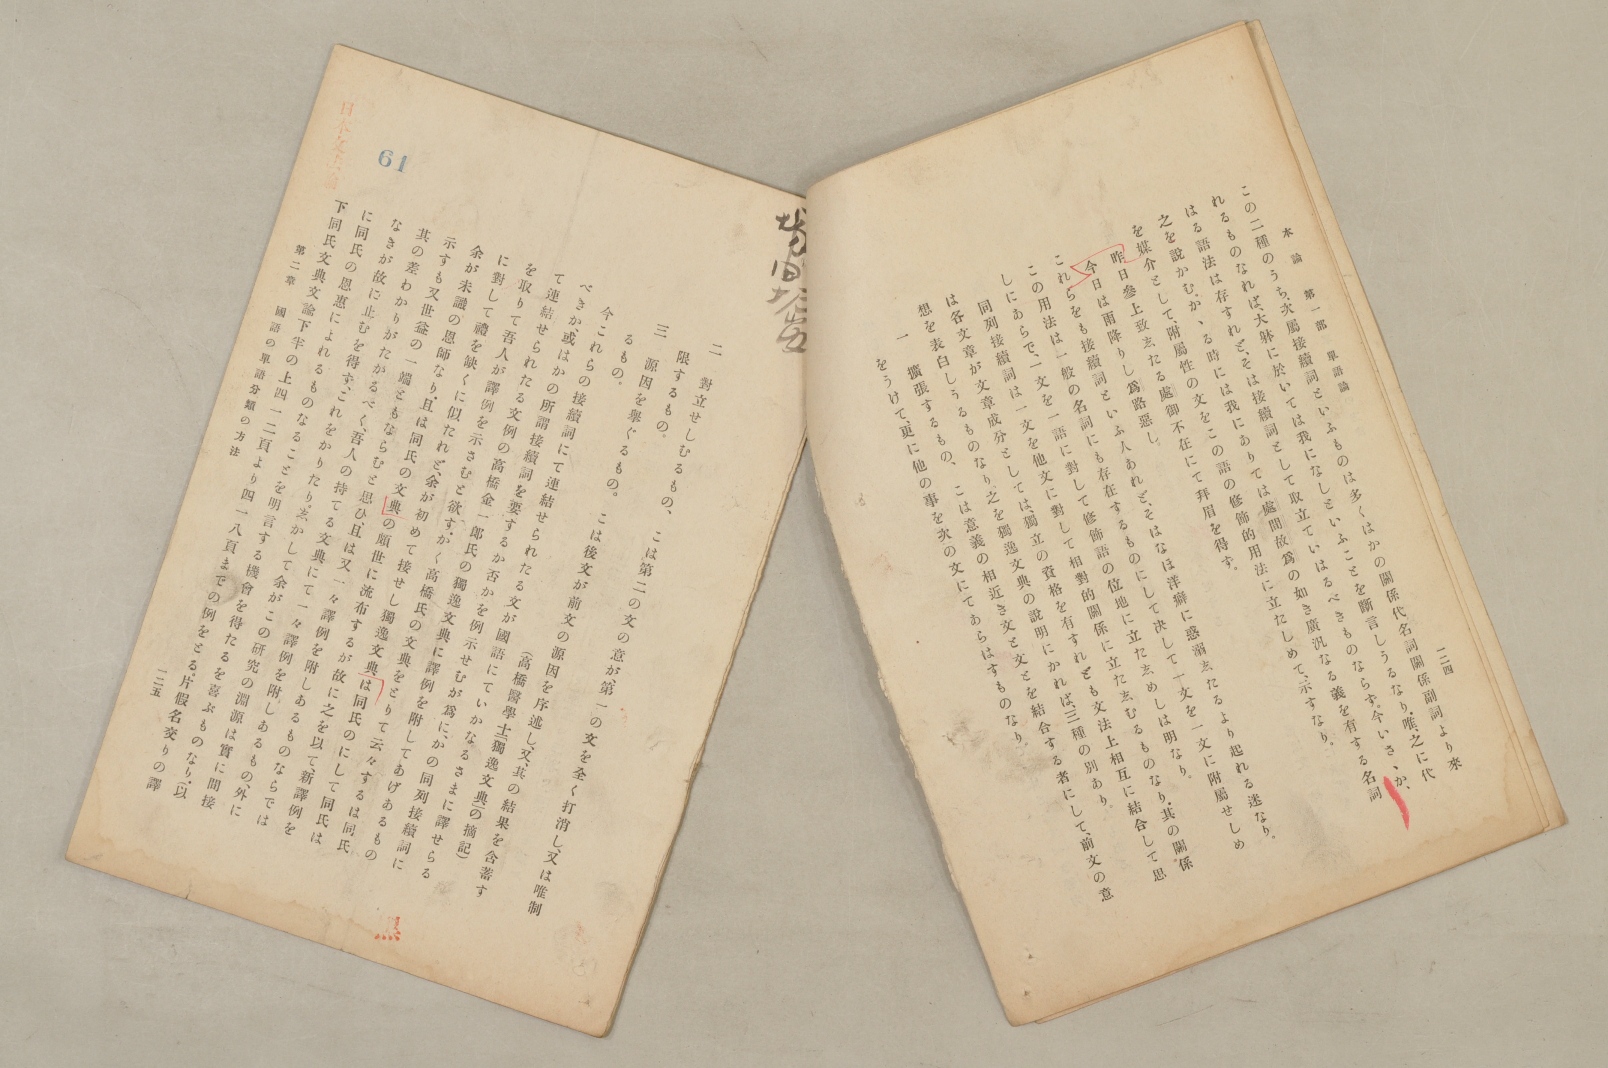 本論　第一部　單語論
一二四
この二種のうち、次屬接續詞といふものは多くはかの關係代名詞關係副詞より來
れるものなれば、大躰に於いては我になしといふことを斷言しうるなり。唯、之に代
はる語法は存すれど、そは接續詞として取立ていはるべきものならず。今いさゝか、
之を說かむか、かゝる時には我にありては處間故爲の如き廣汎なる義を有する名詞
を媒介として、附屬性の文をこの語の修飾的用法に立たしめて、示すなり。
昨日參上致ゑたる處御不在にて拜眉を得ず。
今日は雨降りし爲路惡し。
これらをも接續詞といふ人あれど、そはなほ洋癖に惑溺ゑたるより起れる迷なり。
この用法は一般の名詞にも存在するものにして決して一文を一文に附屬せしめ
しにあらで、一文を一語に對して修飾語の位地に立たゑめしは明なり。
同列接續詞は一文を他文に對して相對的關係に立たゑむるものなり。其の關係
は各文章が文章成分としては、獨立の資格を有すれども文法上相互に結合して思
想を表白しうるものなり。之を獨逸文典の說明にかれば、三種の別あり。
一　擴張するもの、こは意義の相近き文と文とを結合する者にして、前文の意
をうけて、更に他の事を次の文にてあらはすものなり。
二　對立せしむるもの、こは第二の文の意が、第一の文を全く打消し、又は唯制
限するもの。
三　源因を擧ぐるもの。こは後文が前文の源因を序述し、又、其の結果を含蓄す
るもの。
（高橋醫學士獨逸文典の摘記）
今これらの接續詞にて連結せられたる文が國語にていかなるさまに譯せらる
べきか、或はかの所謂接續詞を要するか否かを例示せむが爲に、かの同列接續詞に
て連結せられたる文例の高橋金一郎氏の獨逸文典に譯例を附してあげあるもの
を取りて吾人が譯例を示さむと欲す。かく高橋氏の文典をとりて云々するは同氏
に對して禮を缺くに似たれど、余が初めて接せし獨逸文典は同氏のにして同氏は
余が未識の恩師なり。且は同氏の文典の頗世に流布するが故に之を以て、新譯例を
示すも又世益の一端ともならむと思ひ、且は又一々譯例を附しあるものならでは
其の差わかりがたかるべく、吾人の持てる文典にて一々譯例を附しあるもの、外に
なきが故に止むを得ず、これをかりたり。ゑかして余がこの研究の淵源は實に間接
に同氏の恩惠によれるものなることを明言する機會を得たるを喜ぶものなり。（以
下同氏文典文論下半の上四一二頁より四一八頁までの例をとる。片假名交りの譯
第二章　國語の單語分類の方法
一二五
61